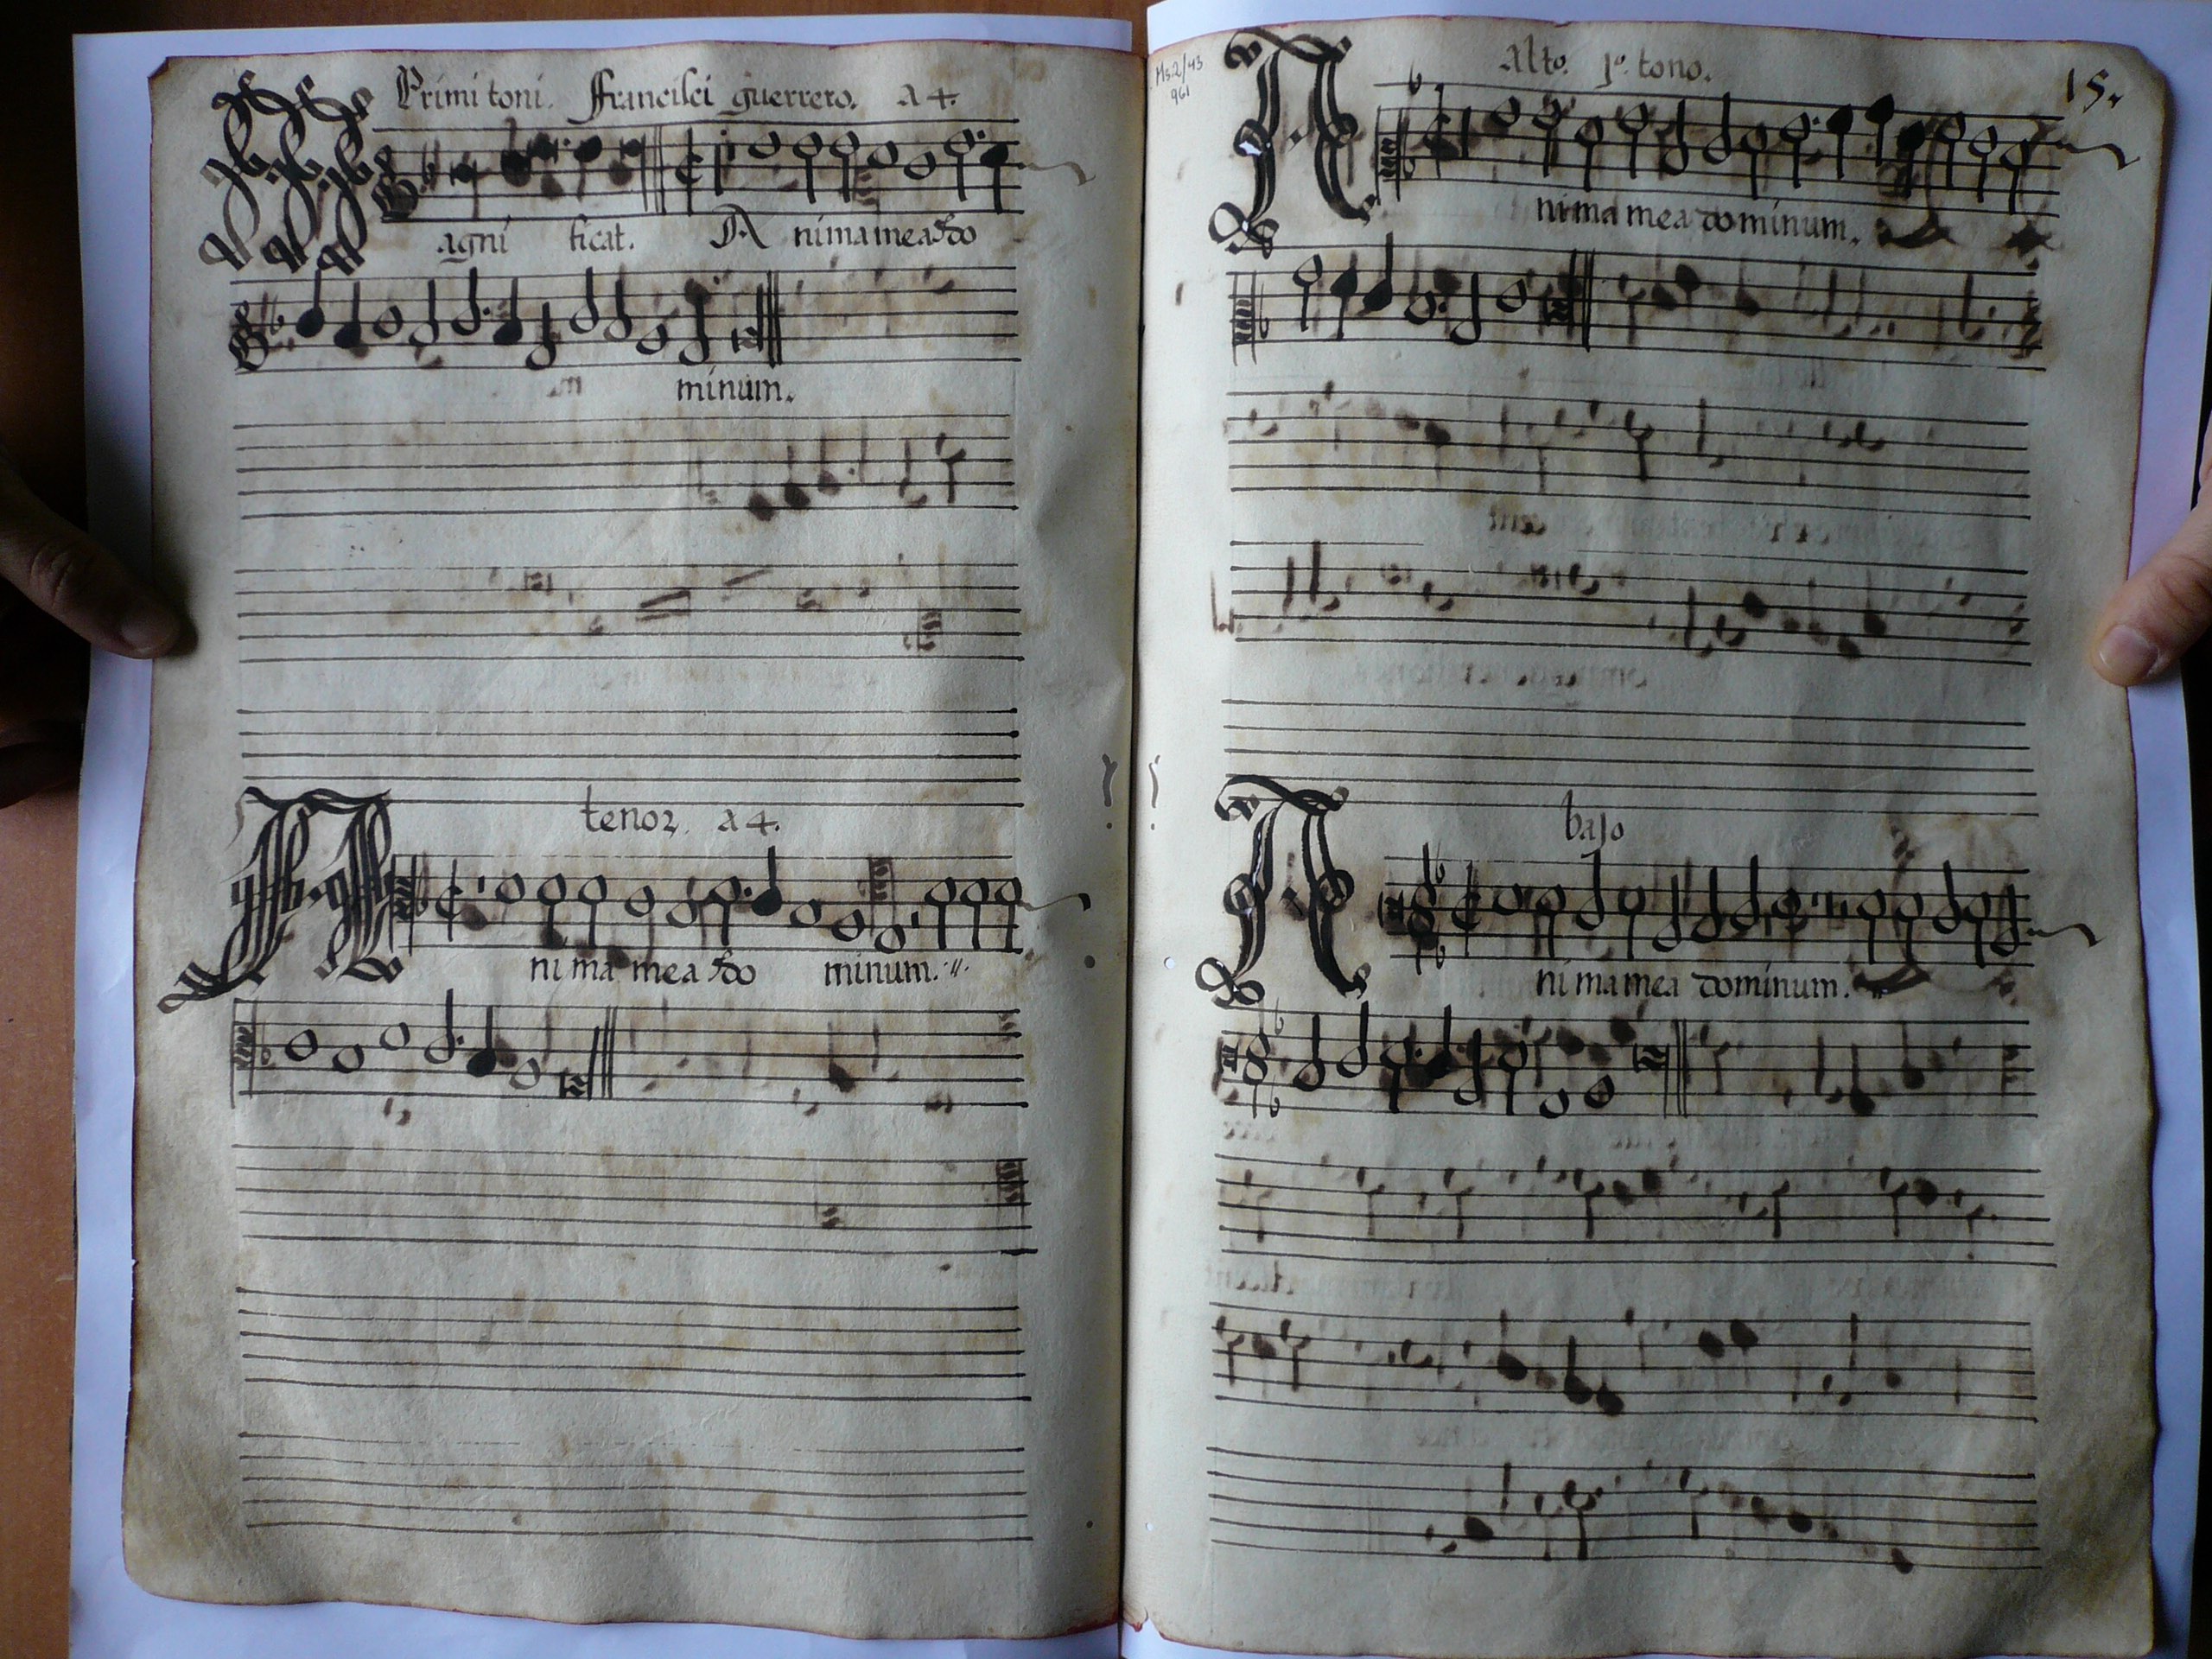 Primi toni. Francisci guerrero. a 4.
agni ficat. A nima mea do
minum.
tenor. a 4.
A nima mea do minum.
Ms. 2/43
961
Alto. 1º. tono.
15.
A nima mea dominum.
bajo
A nima mea dominum.